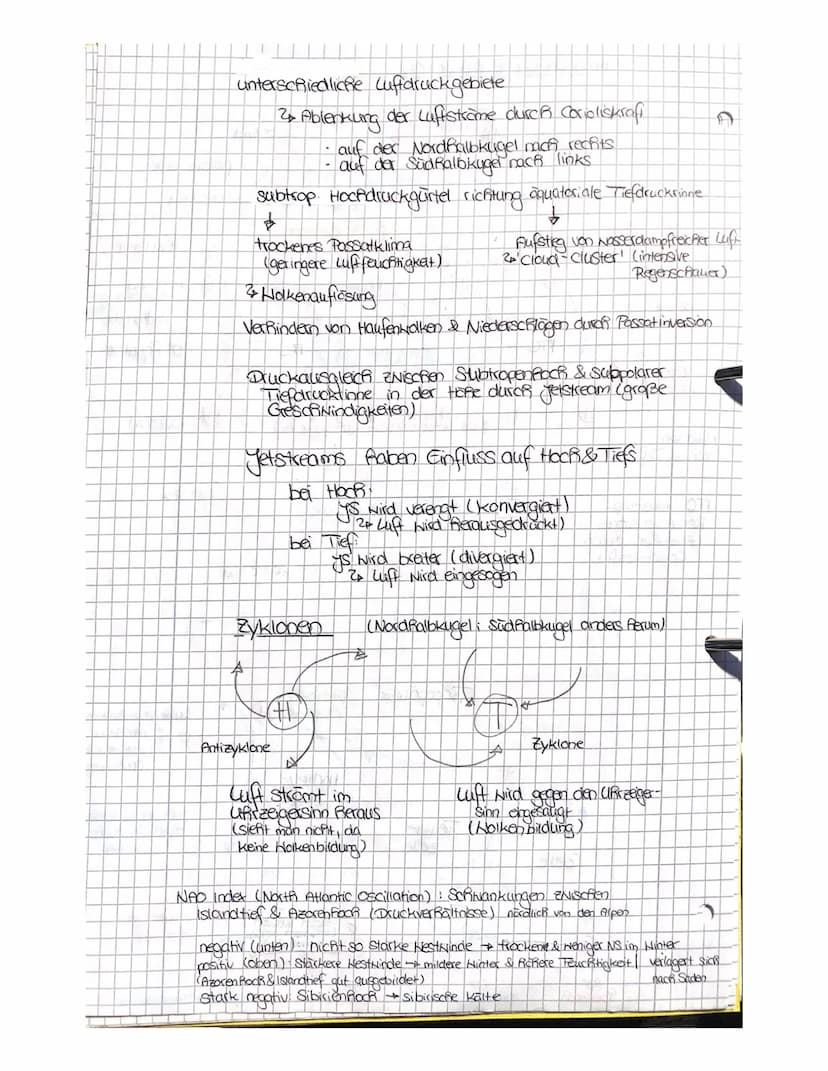 unterschiedliche Luftdruckgebiete
↳ Ablenkung der Luftströme durch Corioliskraft
· auf der Nordhalbkugel nach rechts
· auf der Südhalbkugel nach links
subtrop Hochdruckgürtel richtung äquatoriale Tiefdruckrinne
↓ ↓
trockenes Passatklima
(geringere Luftfeuchtigkeit)
Aufstieg von wasserdampfreicher Luft
↳ 'Cloud-Cluster' (intensive
Regenschauer)
↳ Wolkenauflösung
Verhindern von Haufenwolken & Niederschlägen durch Passatinversion
Druckausgleich zwischen Subtropenhoch & subpolarer
Tiefdruckrinne in der Höhe durch Jetstream (große
Geschwindigkeiten)
Jetstreams haben Einfluss auf Hoch & Tiefs
bei Hoch:
JS wird verengt (konvergiert)
↳ Luft wird herausgedrückt)
bei Tief:
JS wird breiter (divergiert)
↳ Luft wird eingesogen
Zyklonen (Nordhalbkugel; Südhalbkugel anders herum)
H T
Antizyklone Zyklone
Luft strömt im
Uhrzeigersinn heraus
(sieht man nicht, da
keine Wolkenbildung)
Luft wird gegen den Uhrzeiger-
sinn eingesaugt
(Wolkenbildung)
NAO Index (North Atlantic Oscillation): Schwankungen zwischen
Islandtief & Azorenhoch (Druckverhältnisse) nördlich von den Alpen
negativ (unten): nicht so starke Westwinde → trockene & weniger NS im Winter
positiv (oben): stärkere Westwinde → mildere Winter & höhere Feuchtigkeit | verlagert sich
(Azorenhoch & Islandtief gut ausgebildet) nach Süden
stark negativ: Sibirienhoch → sibirische Kälte